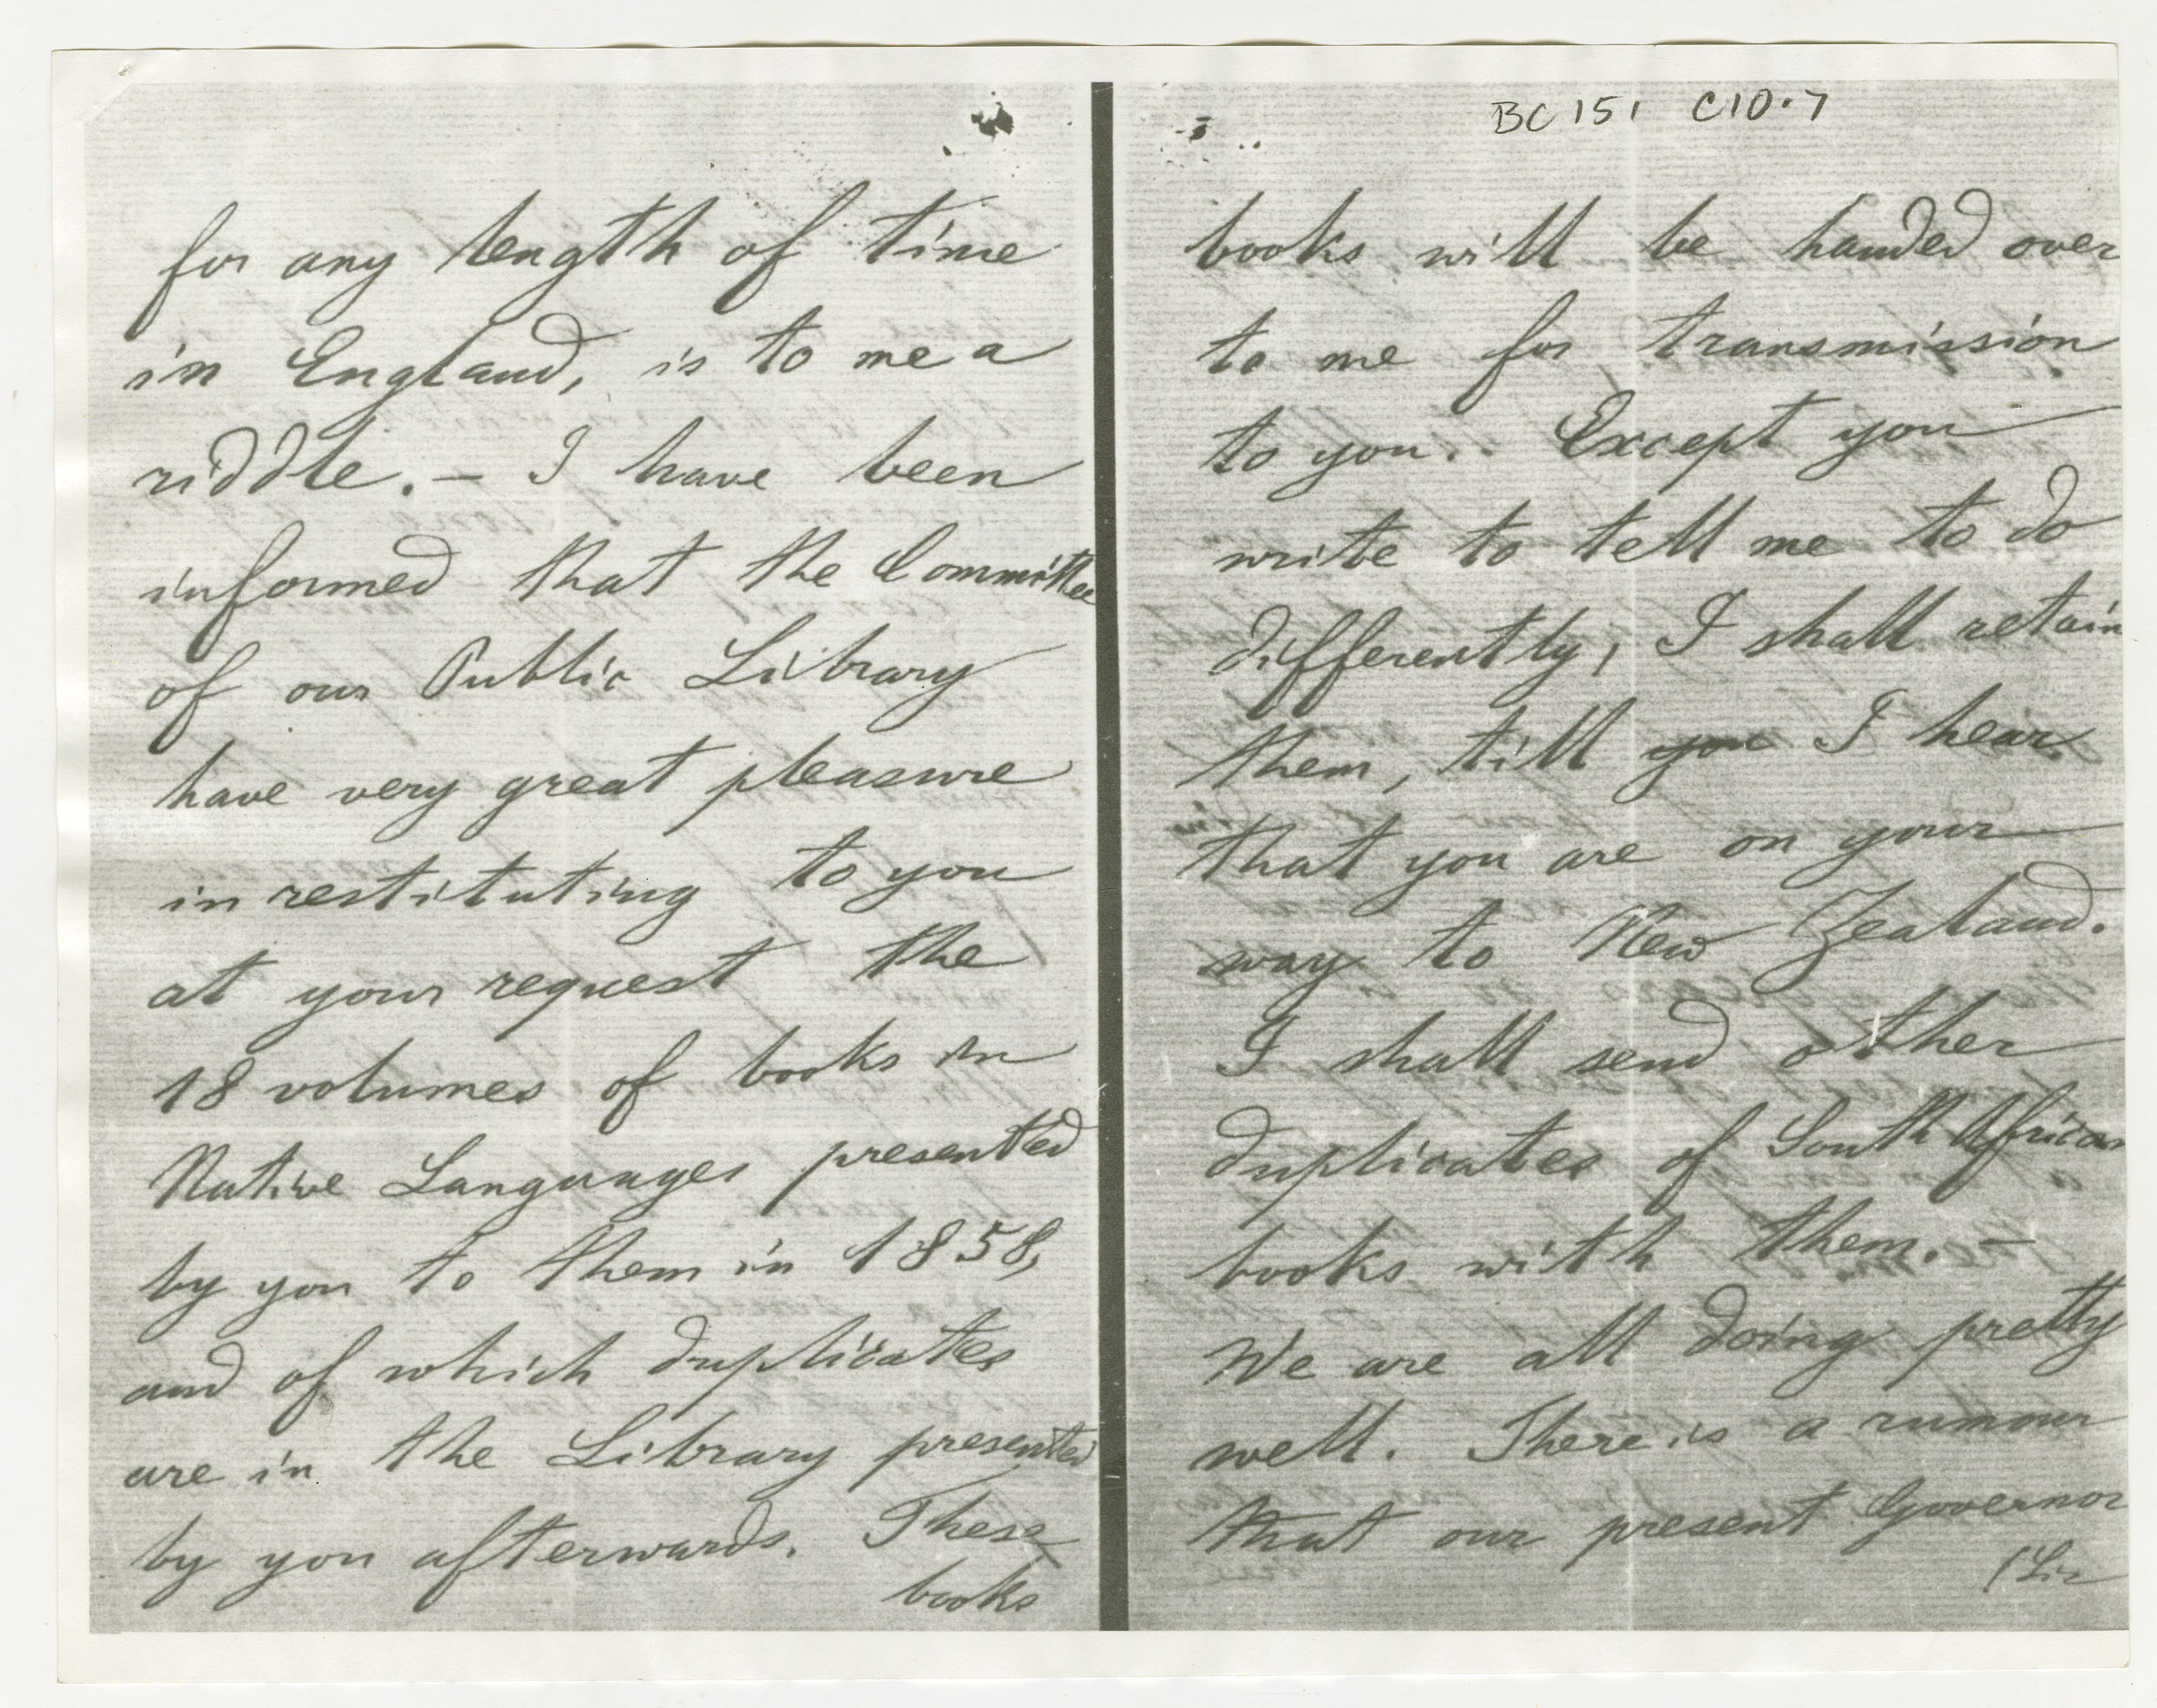 for any length of time
in England, is to me a
riddle. – I have been
informed that the Committee
of our Public Library
have very great pleasure
in restituting to you
at your request the
18 volumes of books in
Native Languages presented
by you to them in 1858,
and of which duplicates
are in the Library presented
by you afterwards. These
books
BC 151 C10.7
books will be handed over
to me for transmission
to you. Except you
write to tell me to do
differently, I shall retain
them, till you I hear
that you are on your
way to New Zealand.
I shall send other
duplicates of South African
books with them. –
We are all doing pretty
well. There is a rumour
that our present Governor
(Sir